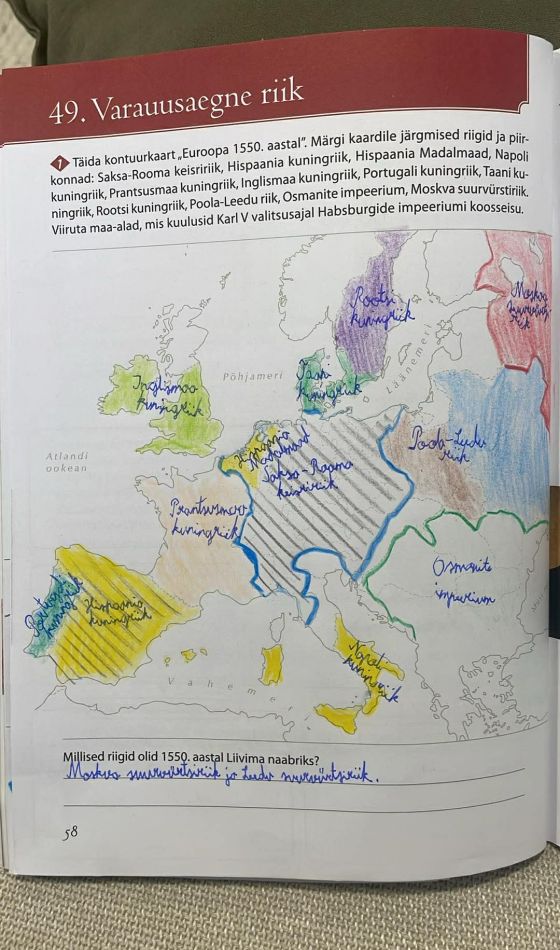 49. Varauusaegne riik
1 Täida kontuurkaart „Euroopa 1550. aastal”. Märgi kaardile järgmised riigid ja piir-
konnad: Saksa-Rooma keisririik, Hispaania kuningriik, Hispaania Madalmaad, Napoli
kuningriik, Prantsusmaa kuningriik, Inglismaa kuningriik, Portugali kuningriik, Taani ku-
ningriik, Rootsi kuningriik, Poola-Leedu riik, Osmanite impeerium, Moskva suurvürstiriik.
Viiruta maa-alad, mis kuulusid Karl V valitsusajal Habsburgide impeeriumi koosseisu.
Rootsi
kuningriik
Moskva
suurvürsti-
riik
Inglismaa
kuningriik
Põhjameri
Taani
kuningriik
Läänemeri
Hispaania
Madalmaad
Poola-Leedu
riik
Atlandi
ookean
Saksa-Rooma
keisririik
Prantsusmaa
kuningriik
Osmanite
impeerium
Portugali
kuningriik
Hispaania
kuningriik
Napoli
kuningriik
Vaheme
Millised riigid olid 1550. aastal Liivima naabriks?
Moskva suurvürtsiriik ja Leedu suurvürtsiriik.
58